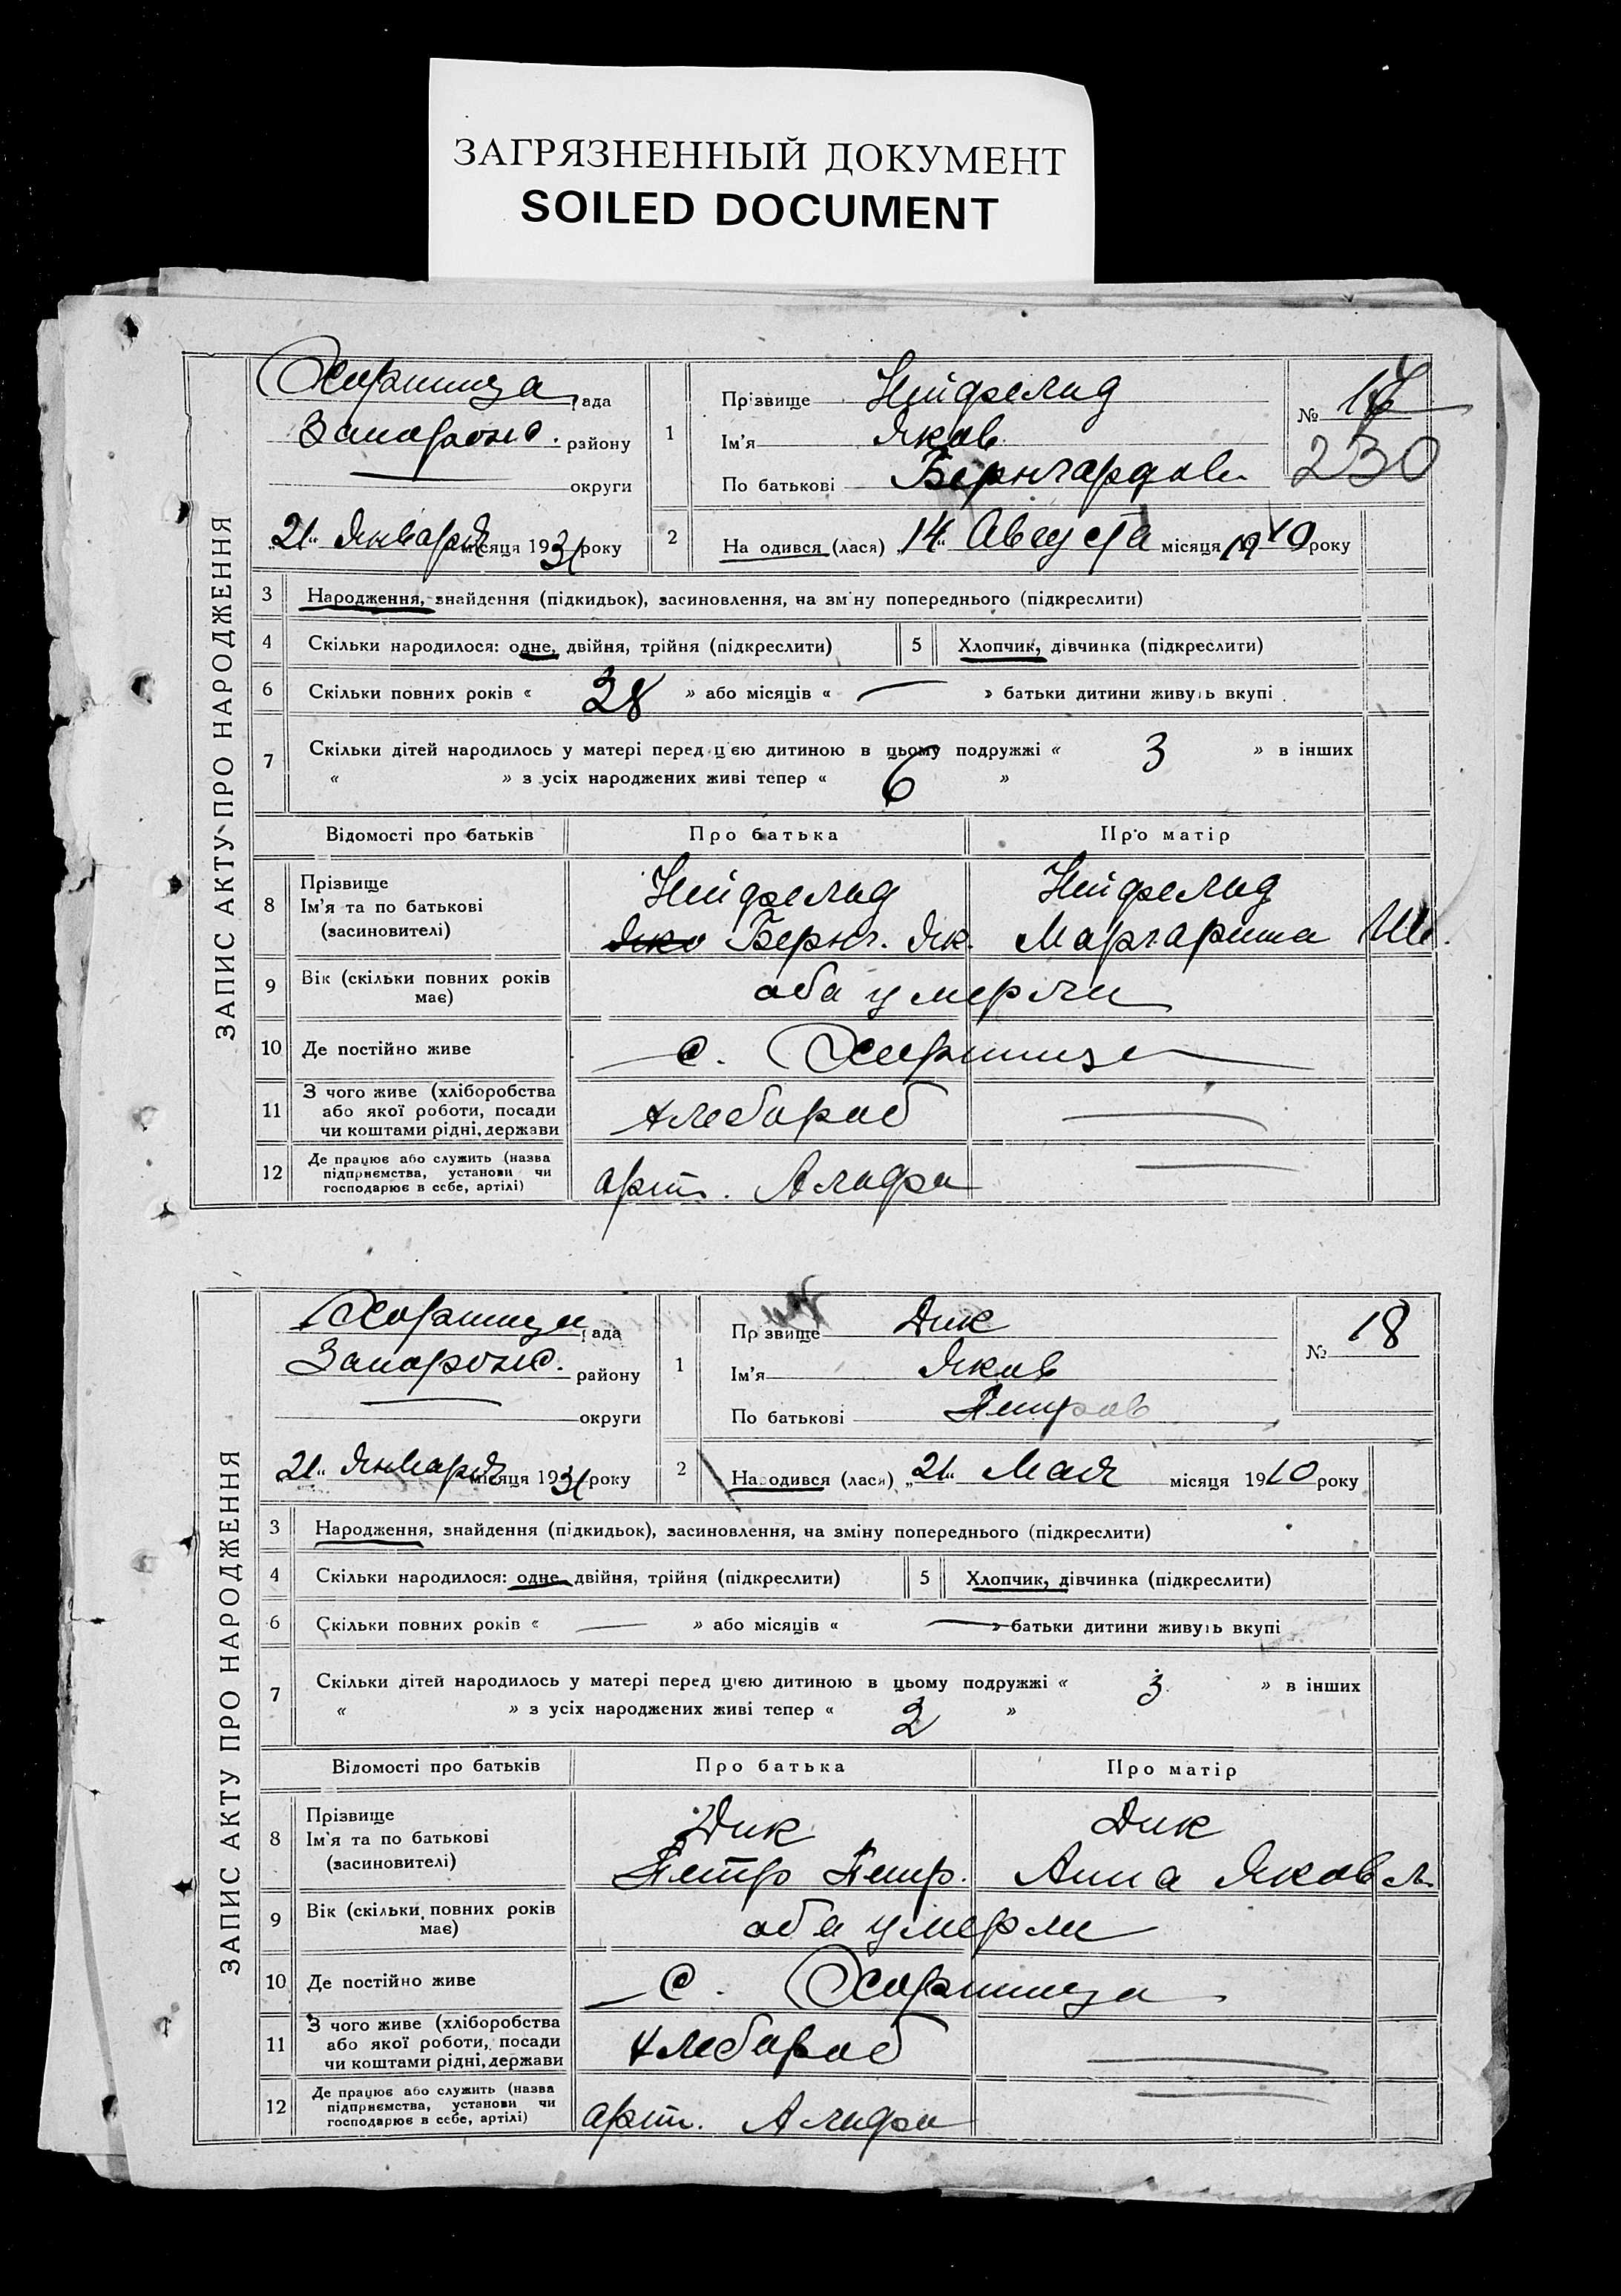 ЗАГРЯЗНЕННЫЙ ДОКУМЕНТ
SOILED DOCUMENT
ЗАПИС АКТУ ПРО НАРОДЖЕННЯ
Хортица рада
Запорож. району
округи
21 Января місяця 1931 року
1 Прізвище Нейфельд
Ім'я Яков
По батькові Бернгардов
№ 17
230
2 Народився (лася) „14" Августа місяця 1910 року
3 Народження, знайдення (підкидьок), засиновлення, на зміну попереднього (підкреслити)
4 Скільки народилося: одне, двійня, трійня (підкреслити) 5 Хлопчик, дівчинка (підкреслити)
6 Скільки повних років « 28 » або місяців « — » батьки дитини живуть вкупі
7 Скільки дітей народилось у матері перед цією дитиною в цьому подружжі « 3 » в інших
« » з усіх народжених живі тепер « 6 »
Відомості про батьків Про батька Про матір
8 Прізвище Нейфельд Нейфельд
Ім'я та по батькові Бернг. Як. Маргарита
(засиновителі)
9 Вік (скільки повних років має) оба умерли
10 Де постійно живе с. Хортица
11 З чого живе (хліборобства
або якої роботи, посади хлебороб —
чи коштами рідні, держави
12 Де працює або служить (назва
підприємства, установи чи арт. —
господарює в себе, артілі)
ЗАПИС АКТУ ПРО НАРОДЖЕННЯ
Хортица рада
Запорож. району
округи
21 Января місяця 1931 року
1 Прізвище Дик
Ім'я Яков
По батькові Петров
№ 18
2 Народився (лася) „21" Мая місяця 1910 року
3 Народження, знайдення (підкидьок), засиновлення, на зміну попереднього (підкреслити)
4 Скільки народилося: одне, двійня, трійня (підкреслити) 5 Хлопчик, дівчинка (підкреслити)
6 Скільки повних років « — » або місяців « — » батьки дитини живуть вкупі
7 Скільки дітей народилось у матері перед цією дитиною в цьому подружжі « 3 » в інших
« » з усіх народжених живі тепер « 2 »
Відомості про батьків Про батька Про матір
8 Прізвище Дик Дик
Ім'я та по батькові Петр Петр. Анна Яковл.
(засиновителі)
9 Вік (скільки повних років має) оба умерли
10 Де постійно живе с. Хортица
11 З чого живе (хліборобства
або якої роботи, посади хлебороб —
чи коштами рідні, держави
12 Де працює або служить (назва
підприємства, установи чи арт. —
господарює в себе, артілі)